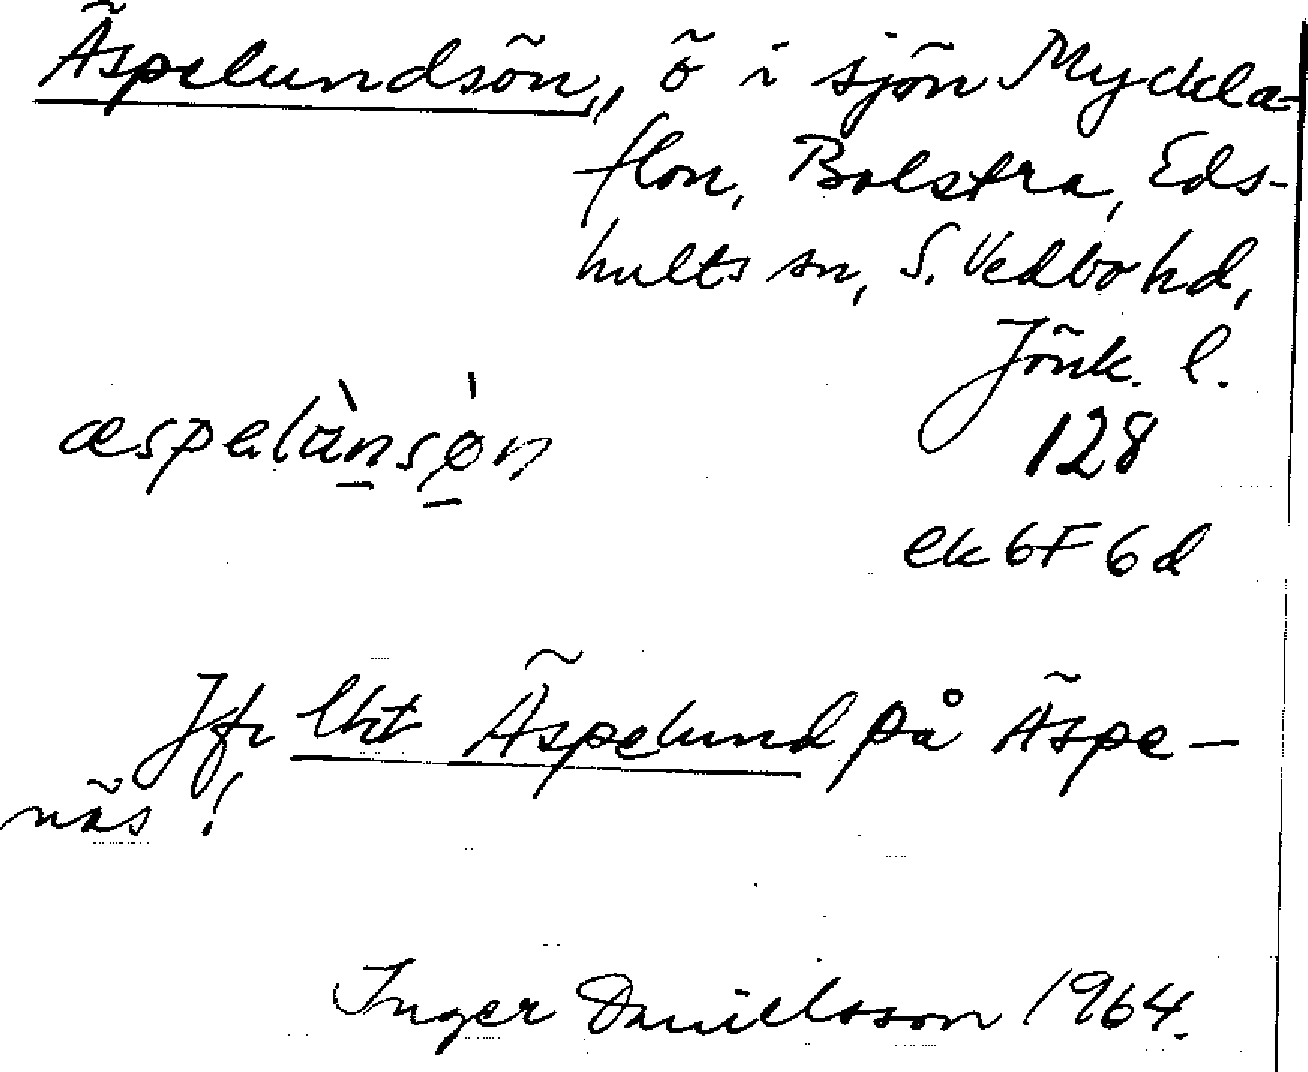 Äspelundsön, ö i sjön Myckla-
flon, Bolstra, Eds-
hults sn, S. Vedbo hd,
Jönk. l.
128
æspelànsø̀n
ek 6F 6d
Jfr lht Äspelund på Äspe-
näs!
Inger Danielsson 1964.